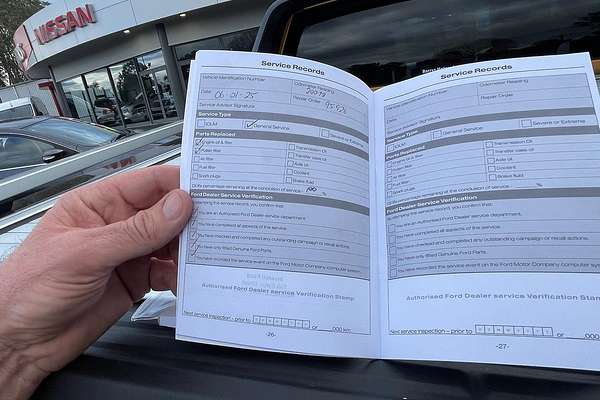 NISSAN
Service Records
Vehicle Identification Number
Odometer Reading
Date
06-01-25
Repair Order
Service Advisor Signature
Service Type
IOLM
General Service
Severe or Extreme
Parts Replaced
Engine oil & filter
Transmission Oil
Pollen filter
Transfer case oil
Air filter
Axle oil
Fuel filter
Coolant
Spark plugs
Brake fluid
IOLM percentage remaining at the conclusion of service: 100 %
Ford Dealer Service Verification
By stamping the service record, you confirm that:
You are an Authorised Ford Dealer service department.
You have completed all aspects of the service.
You have checked and completed any outstanding campaign or recall actions.
You have only fitted Genuine Ford Parts.
You have recorded the service event on the Ford Motor Company computer system.
Authorised Ford Dealer service Verification Stamp
Next service inspection – prior to D D M M Y Y Y Y or 000 km
-26-
Service Records
Vehicle Identification Number
Odometer Reading
Date
Repair Order
Service Advisor Signature
Service Type
IOLM
General Service
Severe or Extreme
Parts Replaced
Engine oil & filter
Transmission Oil
Pollen filter
Transfer case oil
Air filter
Axle oil
Fuel filter
Coolant
Spark plugs
Brake fluid
IOLM percentage remaining at the conclusion of service: %
Ford Dealer Service Verification
By stamping the service record, you confirm that:
You are an Authorised Ford Dealer service department.
You have completed all aspects of the service.
You have checked and completed any outstanding campaign or recall actions.
You have only fitted Genuine Ford Parts.
You have recorded the service event on the Ford Motor Company computer syste
Authorised Ford Dealer service Verification Stam
Next service inspection – prior to D D M M Y Y Y Y or 000
-27-